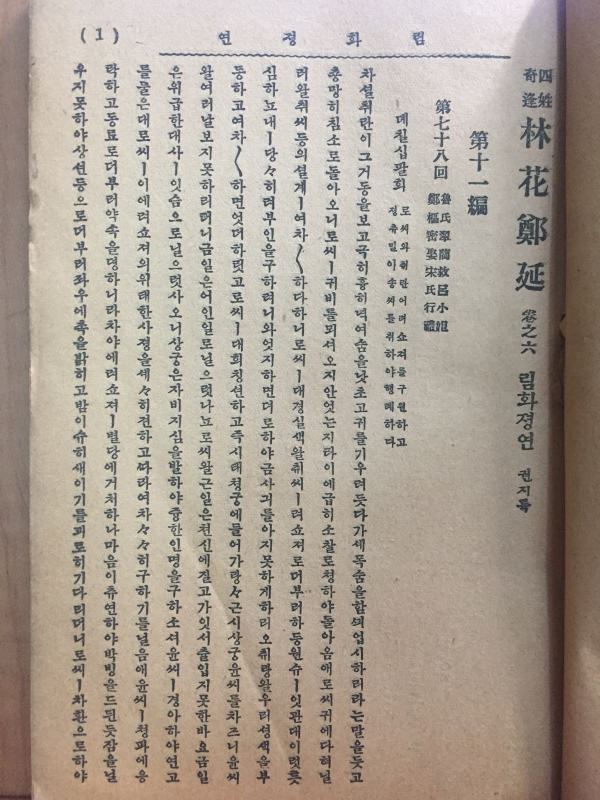 ( 1 )
림화졍연
四姓奇逢 林花鄭延 卷之六 림화졍연 권지륙
第十一編
第七十八回 魯氏翠蘭救呂小姐 鄭樞密娶宋氏行禮
뎨칠십팔회 로씨와 취란이 어려쇼져를 구원하고 졍츄밀이 송씨를 취하야 행례하다
차셜 취란이 그 거동을 보고 극히 흉히 넉여 숨을 낫초고 귀를 기우려 듯다가 세 목숨을 함의 업시하리라는 말을 듯고
총망히 침소로 돌아오니 로씨ㅣ 귀비를 뫼셔 오지 안엇는지라 이에 급히 소찰로 쳥하야 돌아옴애 로씨 귀에 다혀 닐
러왈 취씨 등의 셜계ㅣ 여차〱하다 하니 로씨ㅣ 대경실색왈 취씨ㅣ 려쇼져로 더부러 하등 원슈ㅣ 잇관대 이럿틋
심하뇨 내ㅣ 당々히 려부인을 구하려니와 엇지하면 뎌로 하야금 사긔를 아지 못하게 하리오 취랑왈 우리 셩색을 부
동하고 여차〱하면 엇더하릿고 로씨ㅣ 대희칭션하고 즉시 태쳥궁에 들어가 랑々 근시 상궁 윤씨를 차즈니 윤씨
왈 여러 날 보지 못하리러니 금일은 어인 일로 닐으럿나뇨 로씨왈 근일은 쳔신에 질고 가잇서 츌입지 못한 바요 금일
은 위급한 대사ㅣ 잇슴으로 닐으럿사오니 상궁은 자비지심을 발하야 중한 인명을 구하소셔 윤씨ㅣ 경아하야 연고
를 물은대 로씨ㅣ 이에 려쇼져의 위태한 사졍을 셰々히 젼하고 따라 여차々々히 구하기를 닐음애 윤씨ㅣ 쳥파에 응
락하고 동료로 더부러 약속을 뎡하니라 차야에 려쇼져ㅣ 별당에 거처하나 마음이 츄연하야 박빙을 드된 듯 잠을 닐
우지 못하야 상션 등으로 더부러 좌우에 촉을 밝히고 밤이 슈히 새이기를 괴로히 기다리더니 로씨ㅣ 차환으로 하야